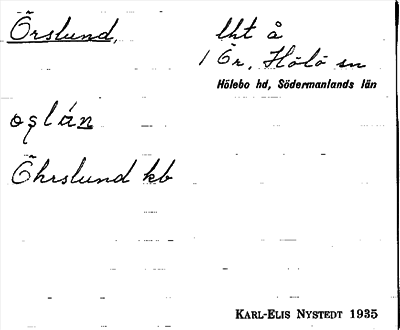 Örslund, lht å
1 Ör, Hölö sn
Hölebo hd, Södermanlands län
Öhrslund kb
KARL-ELIS NYSTEDT 1935